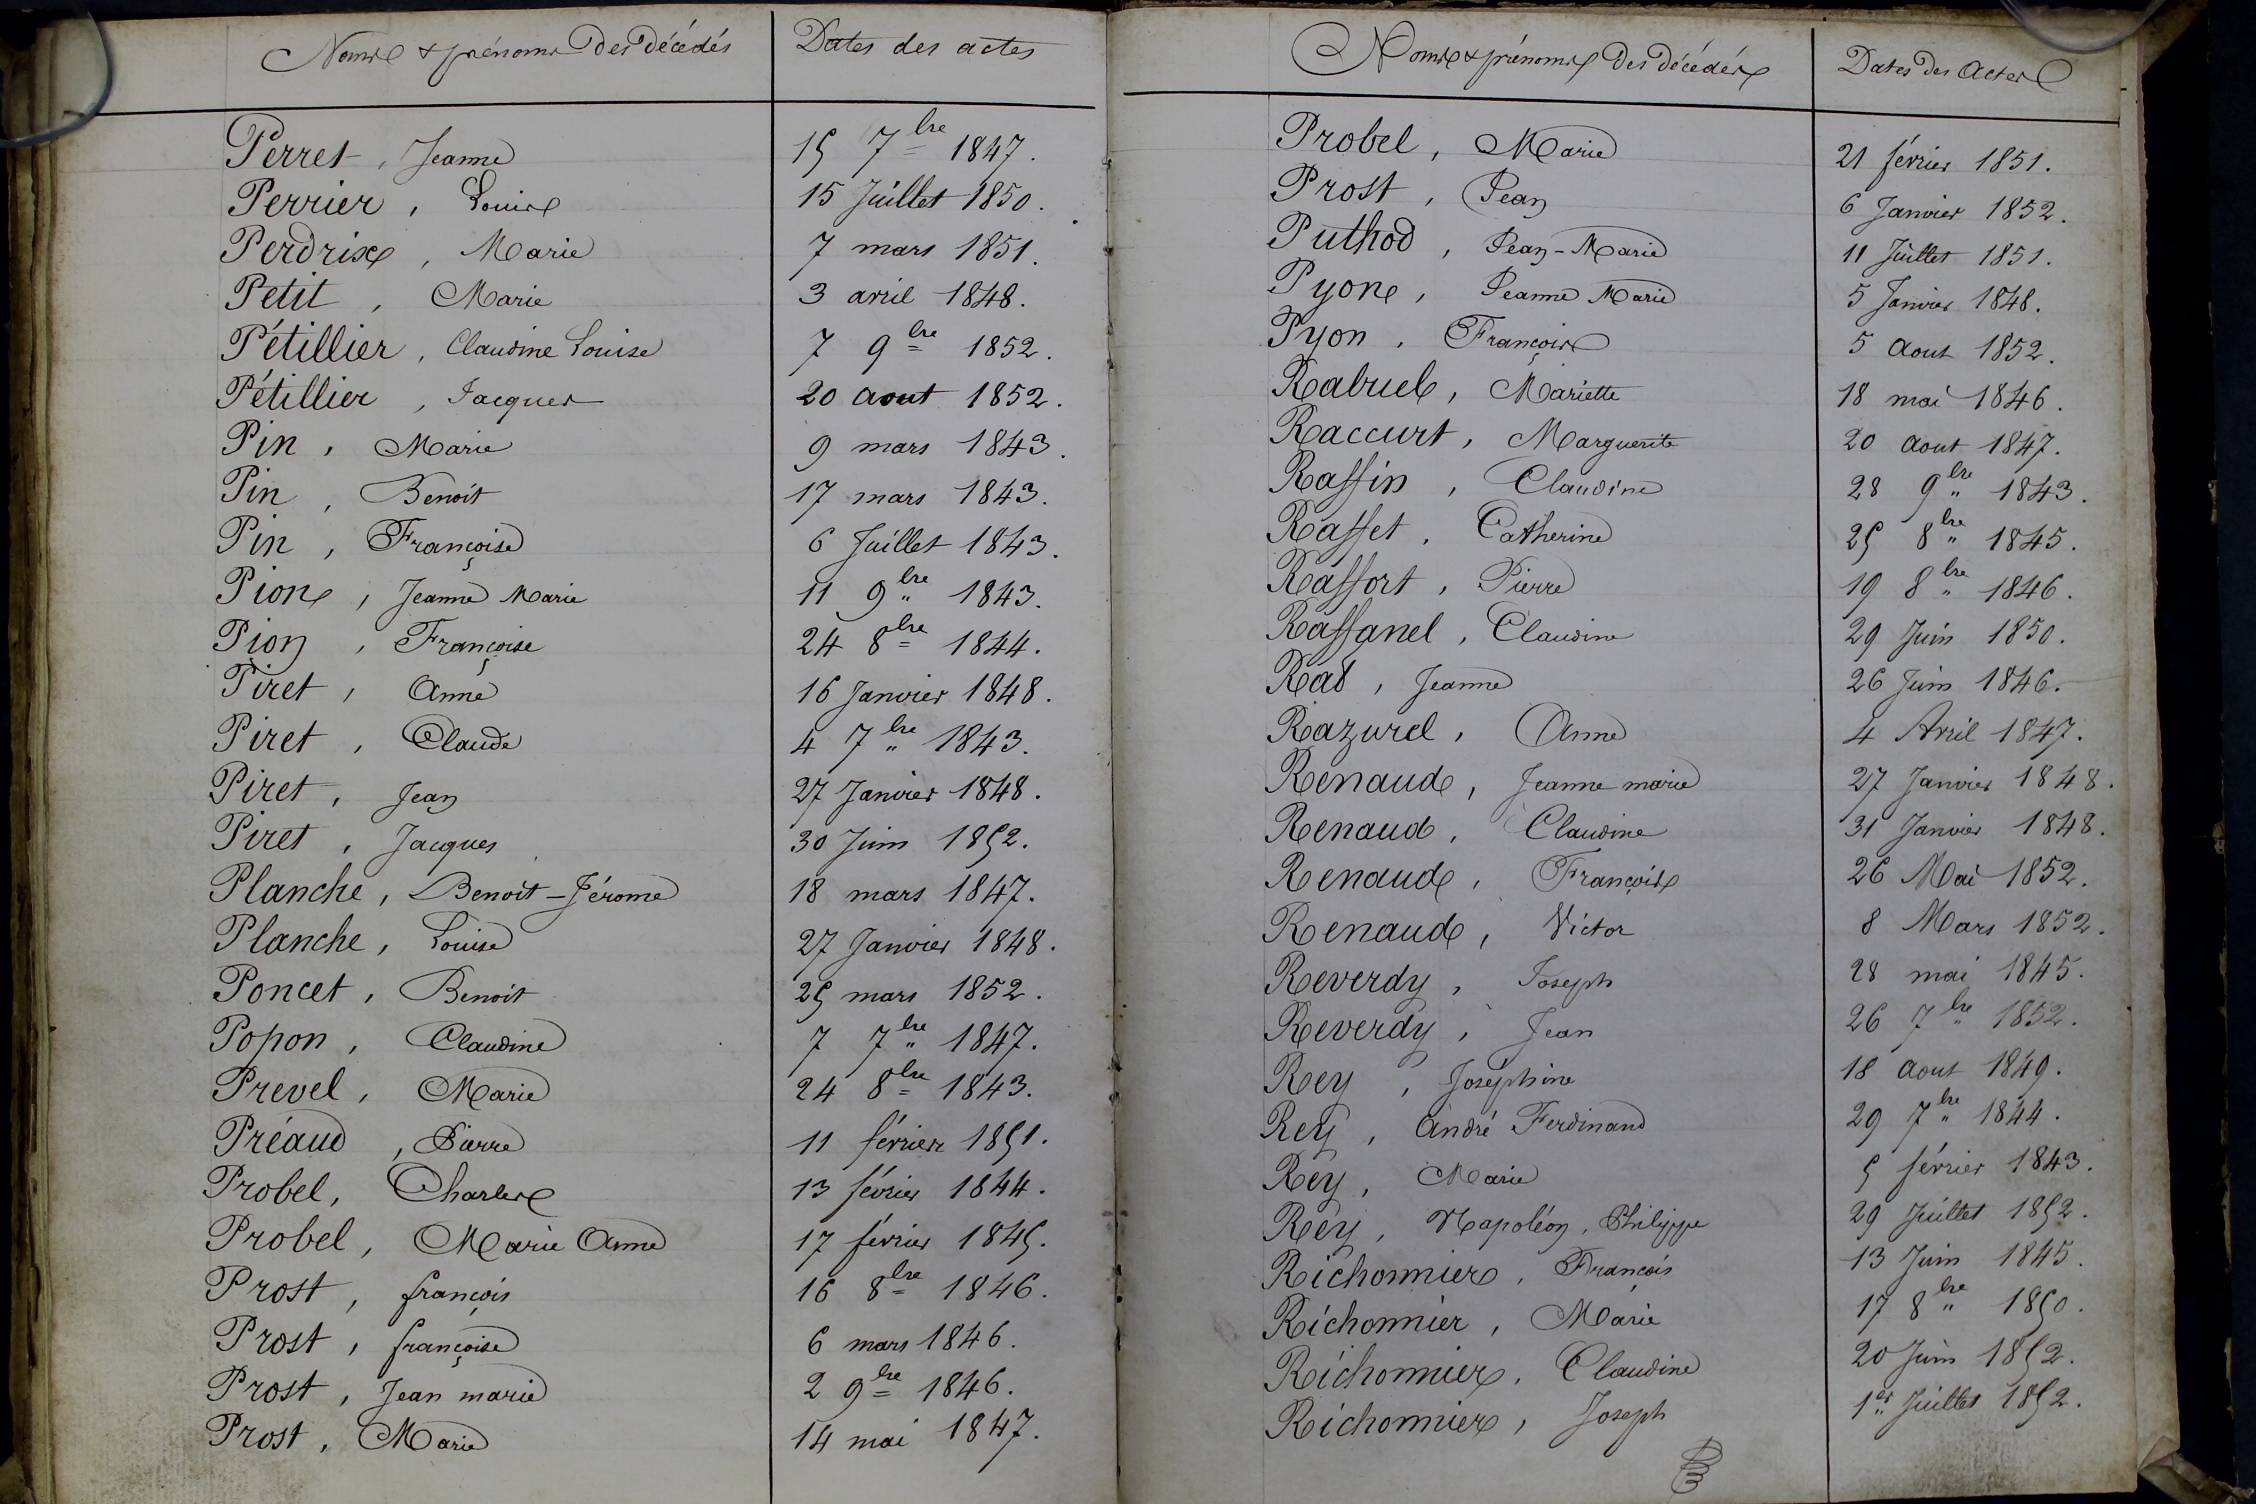 Noms & prénoms des décédés Dates des actes
Perret, Jeanne 15 7bre 1847.
Perrier, Louise 15 Juillet 1850.
Perdrix, Marie 7 mars 1851.
Petit, Marie 3 avril 1848.
Pétillier, Claudine Louise 7 9bre 1852.
Pétillier, Jacques 20 aout 1852.
Pin, Marie 9 mars 1843.
Pin, Benoit 17 mars 1843.
Pin, Françoise 6 Juillet 1843.
Pion, Jeanne Marie 11 9bre 1843.
Pion, Françoise 24 8bre 1844.
Piret, Anne 16 Janvier 1848.
Piret, Claude 4 7bre 1843.
Piret, Jean 27 Janvier 1848.
Piret, Jacques 30 Juin 1852.
Planche, Benoit-Jérome 18 mars 1847.
Planche, Louise 27 Janvier 1848.
Poncet, Benoit 25 mars 1852.
Popon, Claudine 7 7bre 1847.
Prevel, Marie 24 8bre 1843.
Préaud, Pierre 11 février 1851.
Probel, Charles 13 février 1844.
Probel, Marie Anne 17 février 1845.
Prost, françois 16 8bre 1846.
Prost, françoise 6 mars 1846.
Prost, Jean marie 2 9bre 1846.
Prost, Marie 14 mai 1847.
Noms & prénoms des décédés Dates des Actes
Probel, Marie 21 février 1851.
Prost, Jean 6 Janvier 1852.
Puthod, Jean-Marie 11 Juillet 1851.
Pyon, Jeanne Marie 5 Janvier 1848.
Pyon, Françoise 5 Aout 1852.
Rabuel, Mariette 18 mai 1846.
Raccurt, Marguerite 20 Aout 1847.
Raffin, Claudine 28 9bre 1843.
Raffet, Catherine 25 8bre 1845.
Raffort, Pierre 19 8bre 1846.
Raffanel, Claudine 29 Juin 1850.
Rat, Jeanne 26 Juin 1846.
Razurel, Anne 4 Avril 1847.
Renaud, Jeanne marie 27 Janvier 1848.
Renaud, Claudine 31 Janvier 1848.
Renaud, Françoise 26 Mai 1852.
Renaud, Victor 8 Mars 1852.
Reverdy, Joseph 28 mai 1845.
Reverdy, Jean 26 7bre 1852.
Rey, Joséphine 18 Aout 1849.
Rey, André Ferdinand 29 7bre 1844.
Rey, Marie 5 février 1843.
Rey, Napoléon, Philippe 29 Juillet 1852.
Richonnier, François 13 Juin 1845.
Richonnier, Marie 17 8bre 1850.
Richonnier, Claudine 20 Juin 1852.
Richonnier, Joseph 1er Juillet 1852.